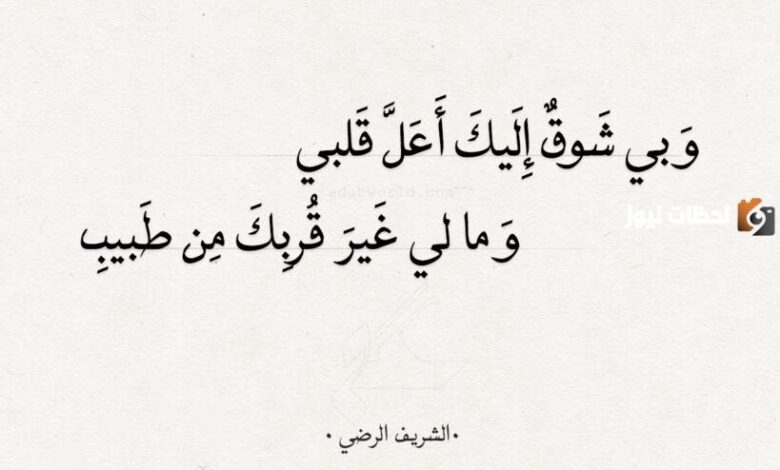 وَ بي شَوقٌ إِلَيكَ أَعَلَّ قَلبي
adabworld.com
لحظات نيوز
وَ ما لي غَيرَ قُربِكَ مِن طَبيبِ
٠الشريف الرضي ٠